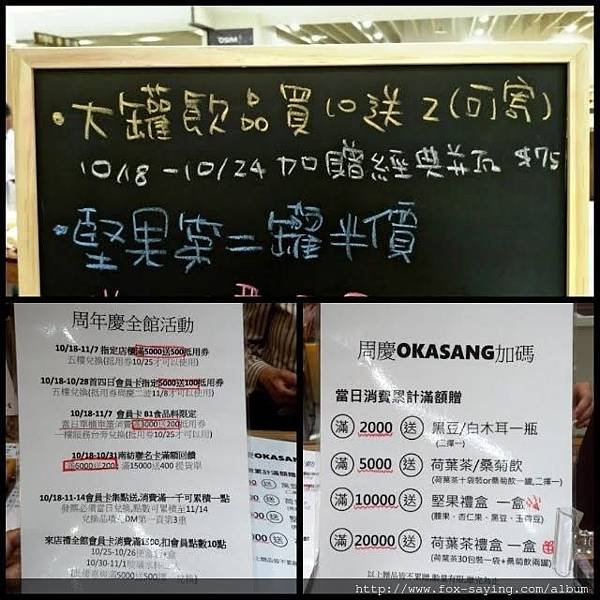 • 大罐飲品買10送2(可寄)
10/18-10/24加贈經典 $75
• 堅果第二罐半價
周年慶全館活動
10/18-11/7 指定店櫃滿5000送500抵用券
五樓兌換(抵用券10/25才可以使用)
10/18-10/28首四日會員卡指定5000送100抵用券
五樓兌換(抵用券 二波11/8才可以使用)
10/18-11/7 會員卡 B1食品料限定
當日單櫃單筆消費滿3000送200抵用券
一樓服務台旁兌換(抵用券10/25才可以用)
10/18-10/31南紡聯名卡滿額回饋
滿6000送200 滿15000送400 提貨單
10/18-11-14會員卡集點送,消費滿一千可累積一點
發票必須當日兌換,點數可累積至11/14
兌換品項 DM第一頁第3重
來店禮全館會員卡消費滿1500,扣會員點數10點
10/25-10/26
10/30-11/1
周慶OKASANG加碼
當日消費累計滿額贈
滿 2000 送 黑豆/白木耳一瓶
(二擇一)
滿 5000 送 荷葉茶/桑菊飲
(荷葉茶十袋裝or桑菊飲一罐,二擇一)
滿 10000 送 堅果禮盒 一盒
(腰果、杏仁果、黑豆、)
滿 20000 送 荷葉茶禮盒 一盒
(荷葉茶30包裝一袋+桑菊飲兩罐)
以上贈品皆不累贈,數量有限,贈完為止
http://www.fox-saying.com/album